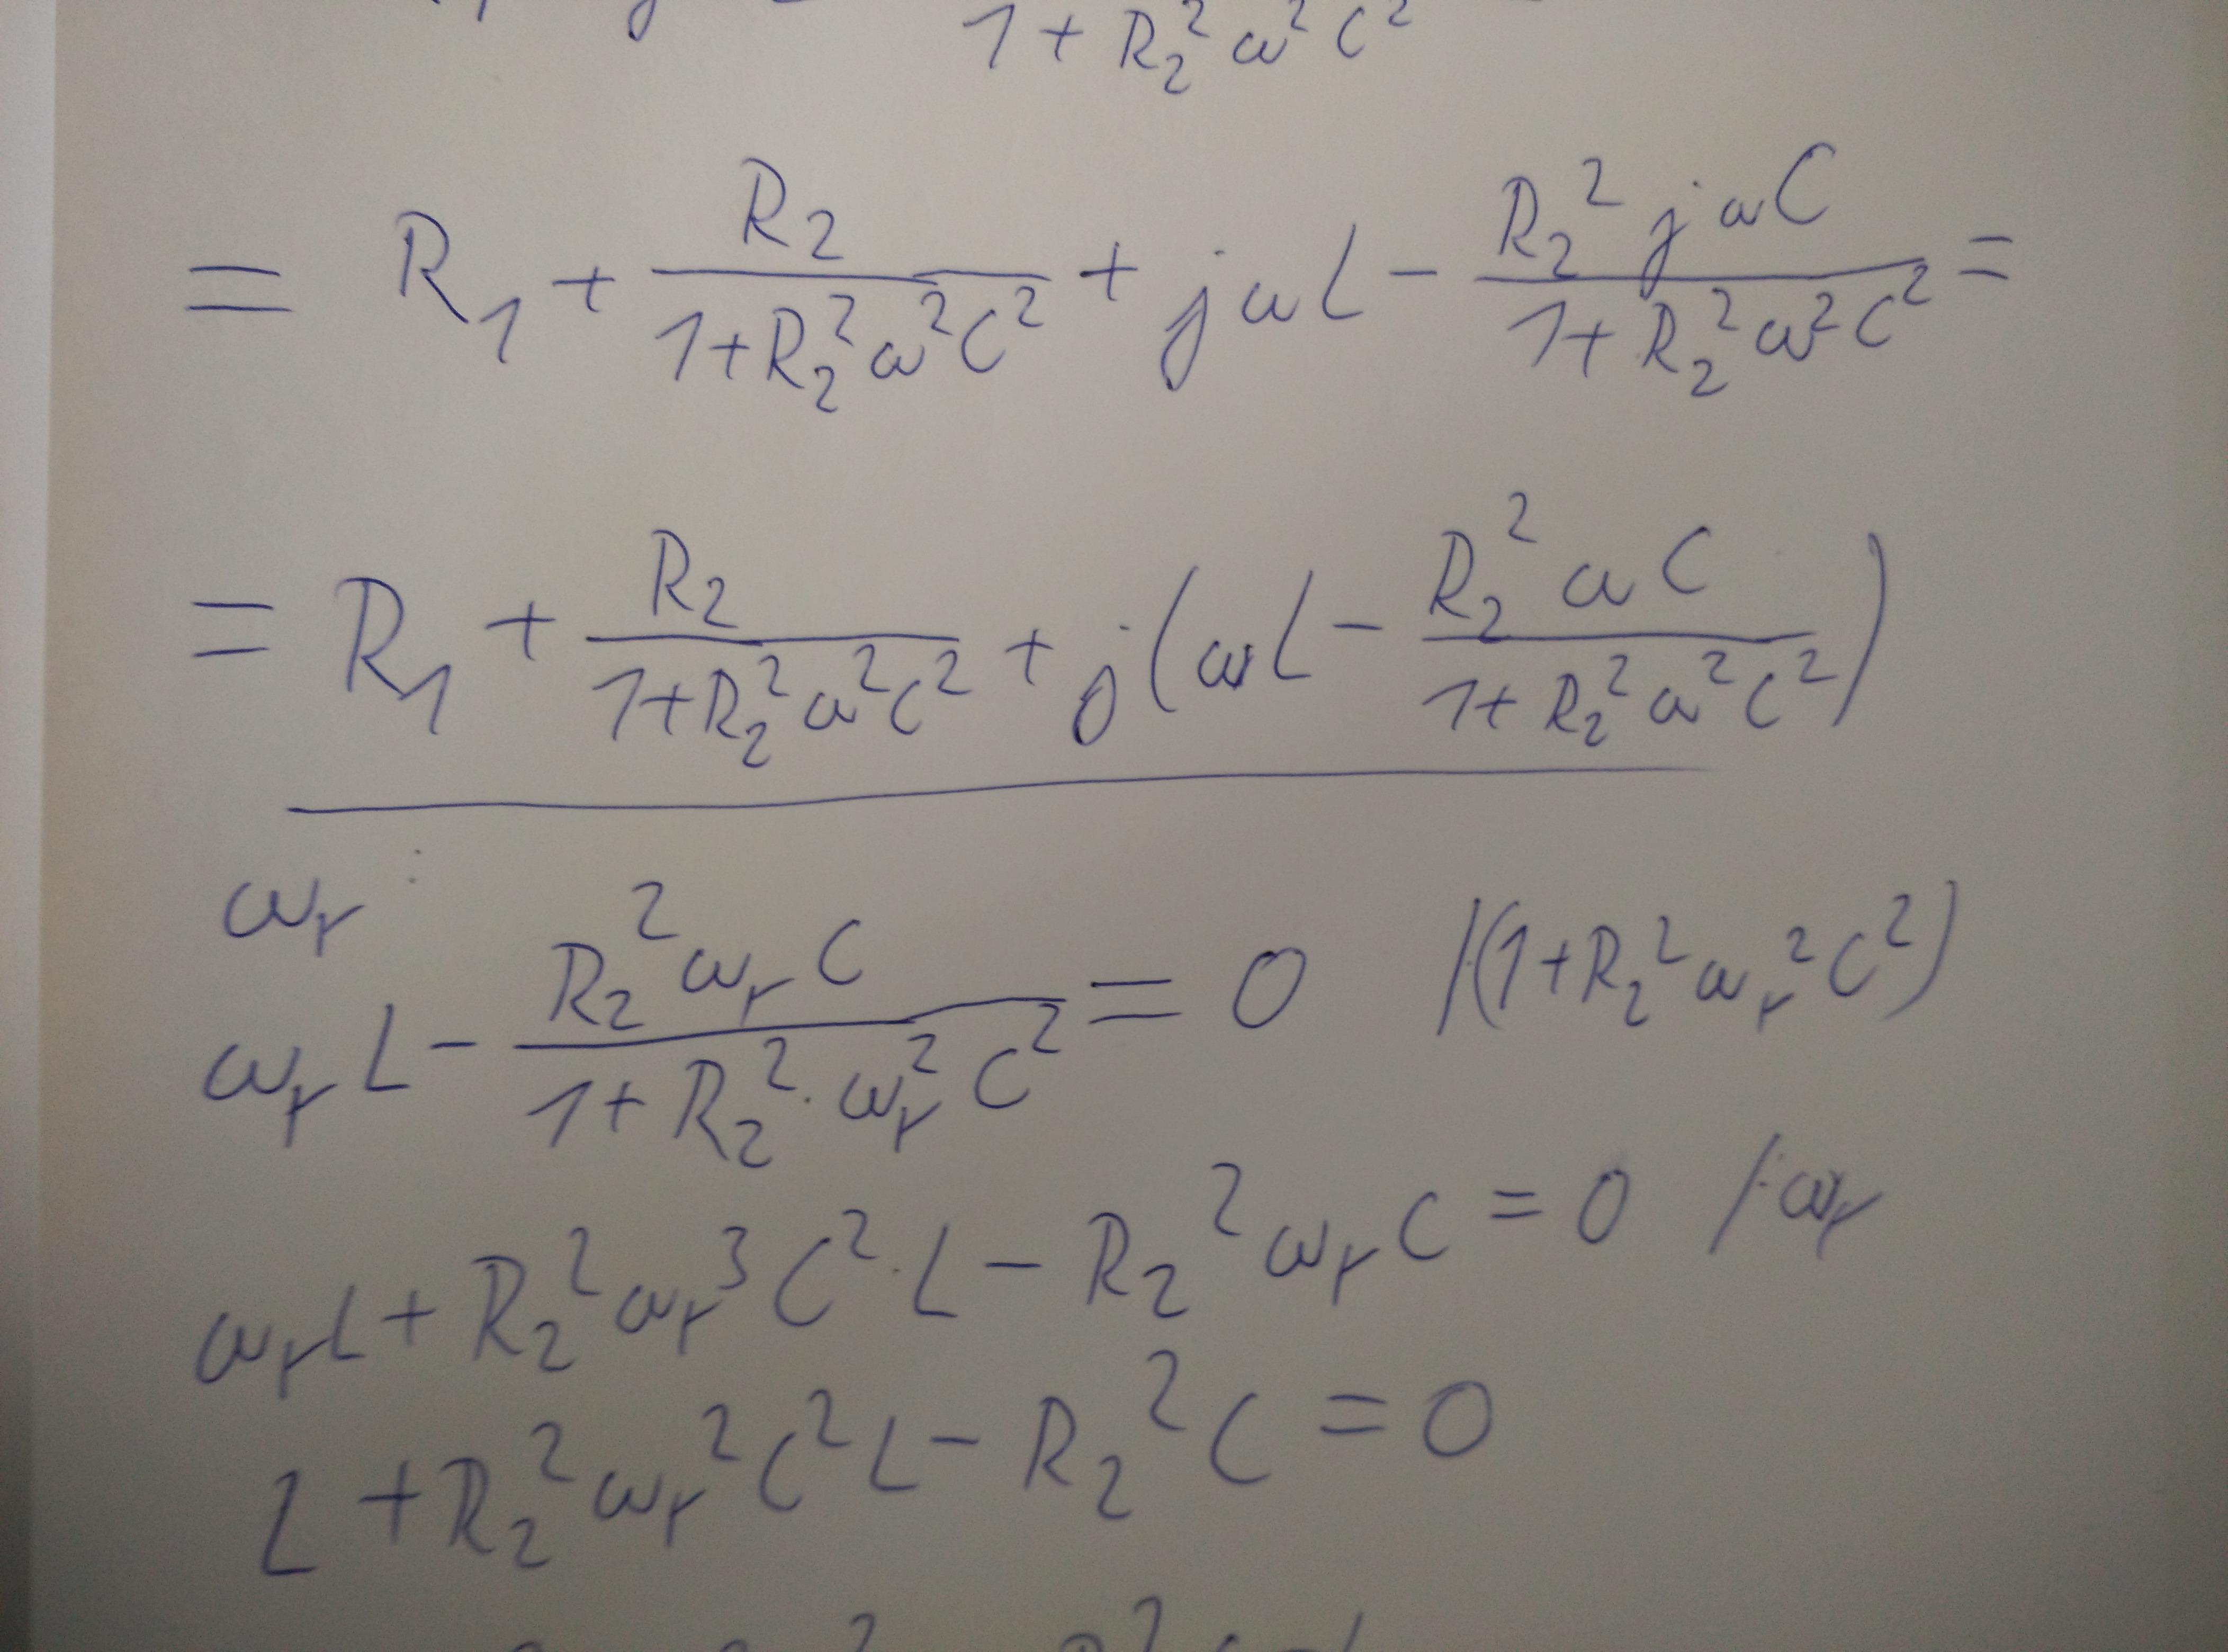 1 + R₂² ω² C²
= R₁ + R₂ / (1 + R₂² ω² C²) + jωL − R₂² jωC / (1 + R₂² ω² C²) =
= R₁ + R₂ / (1 + R₂² ω² C²) + j(ωL − R₂² ωC / (1 + R₂² ω² C²))
ωᵣ:
ωᵣL − R₂² ωᵣ C / (1 + R₂² · ωᵣ² C²) = 0 /·(1 + R₂² ωᵣ² C²)
ωᵣL + R₂² ωᵣ³ C² · L − R₂² ωᵣ C = 0 /: ωᵣ
L + R₂² ωᵣ² C² L − R₂² C = 0